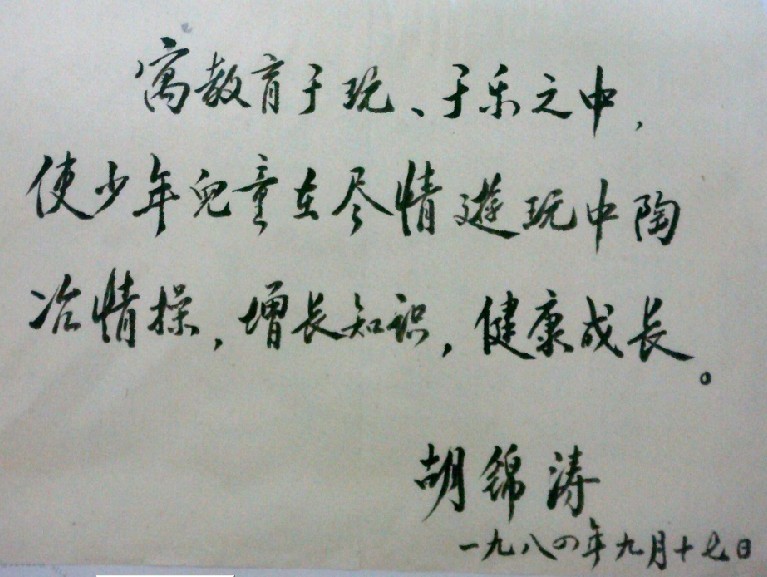 寓教育于玩、于乐之中，
使少年兒童在尽情遊玩中陶
冶情操，增长知识，健康成长。
胡锦涛
一九八四年九月十七日